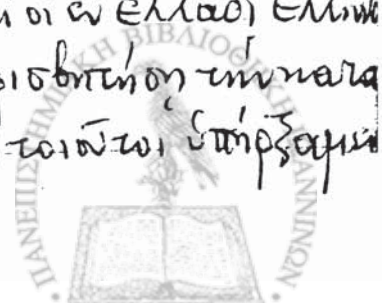 οι εν Ελλάδι Ελλην
την κατα
τοιοῦτοι ὑπήρξαμεν
ΠΑΝΕΠΙΣΤΗΜΙΑΚΗ ΒΙΒΛΙΟΘΗΚΗ ΙΩΑΝΝΙΝΩΝ